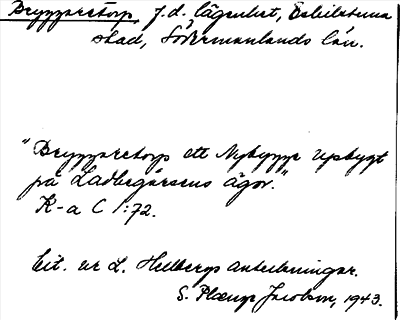 Bryggaretorp f.d. lägenhet, Eskilstuna
stad, Södermanlands län.
"Bryggaretorp ett Nybygge upbygt
på Ladbegårdens ägor."
K-a C 1:72.
Cit. ur L. Hellbergs anteckningar.
S. Plæng Jacobson, 1943.